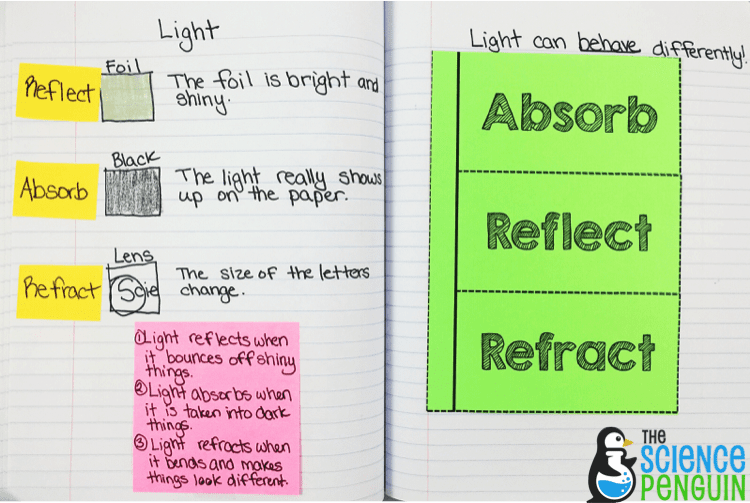 Light
Reflect
Foil
The foil is bright and
shiny.
Absorb
Black
The light really shows
up on the paper.
Refract
Lens
Scie
The size of the letters
change.
①Light reflects when
it bounces off shiny
things.
②Light absorbs when
it is taken into dark
things.
③Light refracts when
it bends and makes
things look different.
Light can behave differently!
Absorb
Reflect
Refract
THE
SCIENCE
PENGUIN